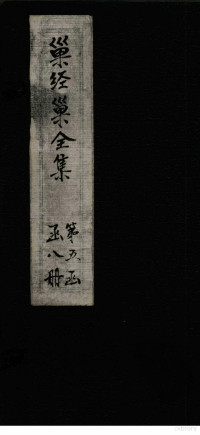 巢经巢全集
第五函
函八册